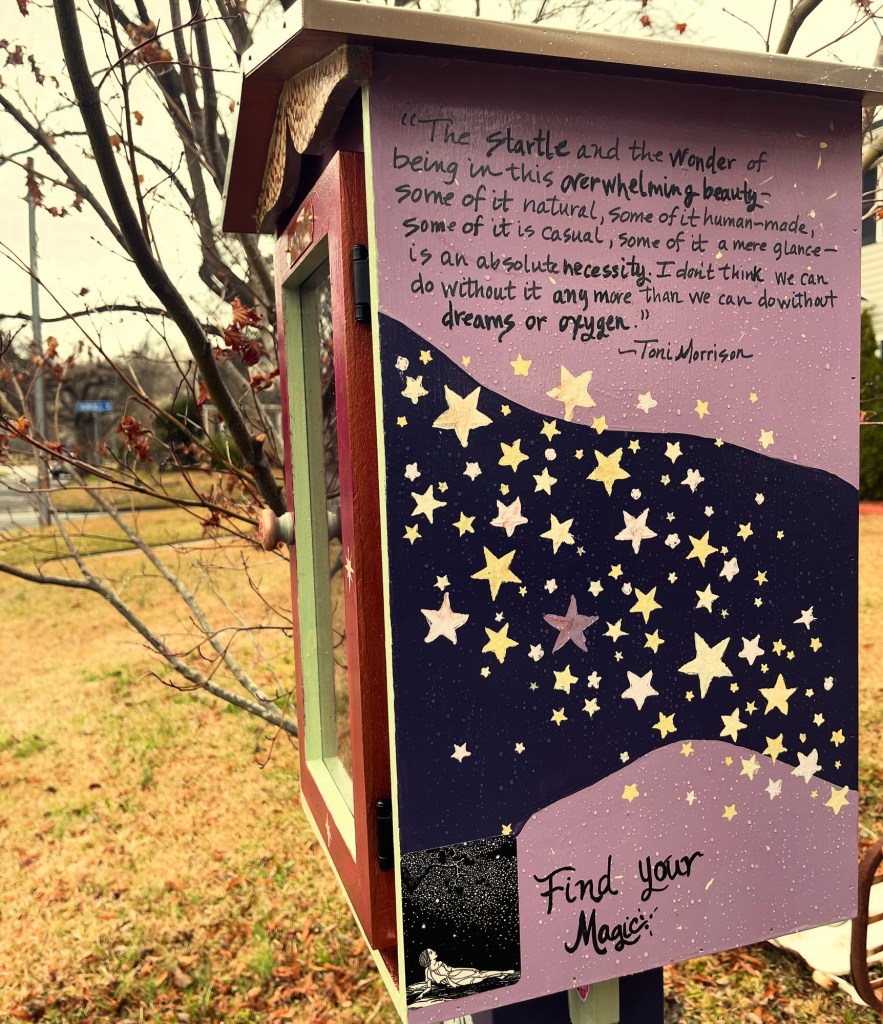 "The startle and the wonder of
being in this overwhelming beauty-
some of it natural, some of it human-made,
some of it is casual, some of it a mere glance-
is an absolute necessity. I don't think we can
do without it any more than we can do without
dreams or oxygen."
-Toni Morrison
Find Your
Magic